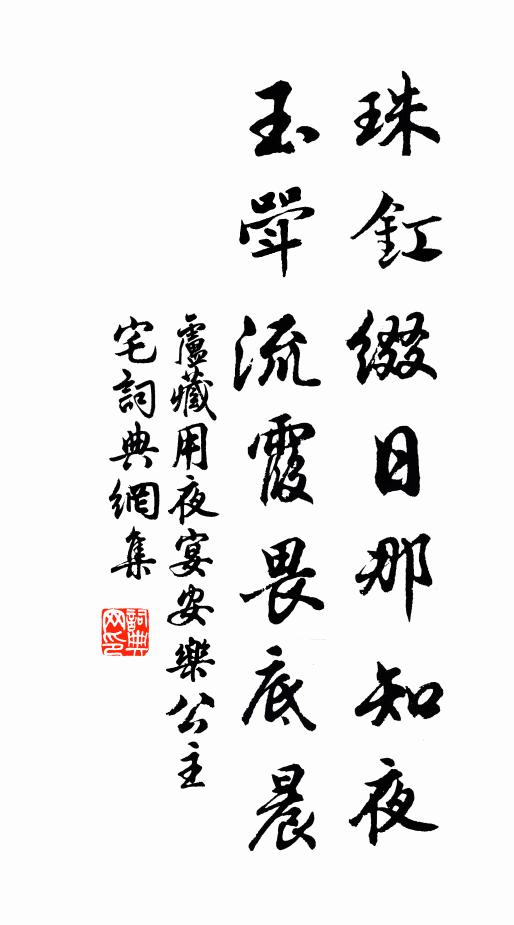 珠釭綴日那知夜
玉斝流霞畏底晨
盧藏用夜宴安樂公主
宅詞典網集
詞典網印